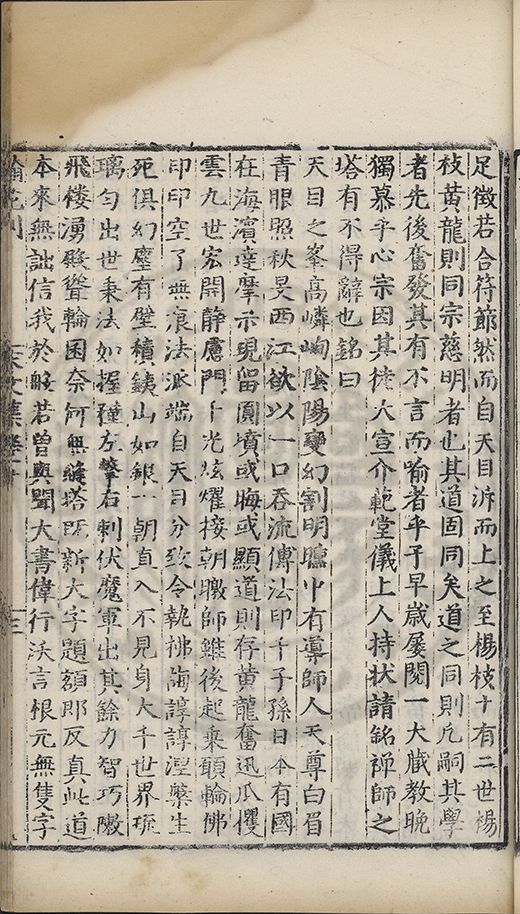 足徵若合符節然而自天目泝而上之至楊枝十有二世楊
枝黃龍則同宗慈明者也其道固同矣道之同則凡嗣其學
者先後奮發其有不言而喻者乎予早歲屢閱一大藏教晚
獨慕乎心宗因其徒大宣介範堂儀上人持狀請銘禪師之
塔有不得辭也銘曰
天目之峯高嶙峋陰陽變幻割明曛中有導師人天尊白眉
青眼照秋旻西江欲以一口吞流傳法印千子孫日本有國
在海濱達摩示現留圓墳或晦或顯道則存黃龍奮迅爪攫
雲九世宏開靜慮門千光炫耀接朝暾師雖後起乘願輪佛
印印空了無痕法派端自天目分致令執拂誨諄諄涅槃生
死俱幻塵有壁積鐵山如銀一朝直入不見身大千世界玭
璃勻出世秉法如握穜左撃右刺伏魔軍出其餘力智巧敶
飛樓湧殿聳輪囷奈何無縫塔旣新大字題額即反真此道
本來無詘信我於般若曾與聞大書偉行沃言根元無隻字
宋文集卷